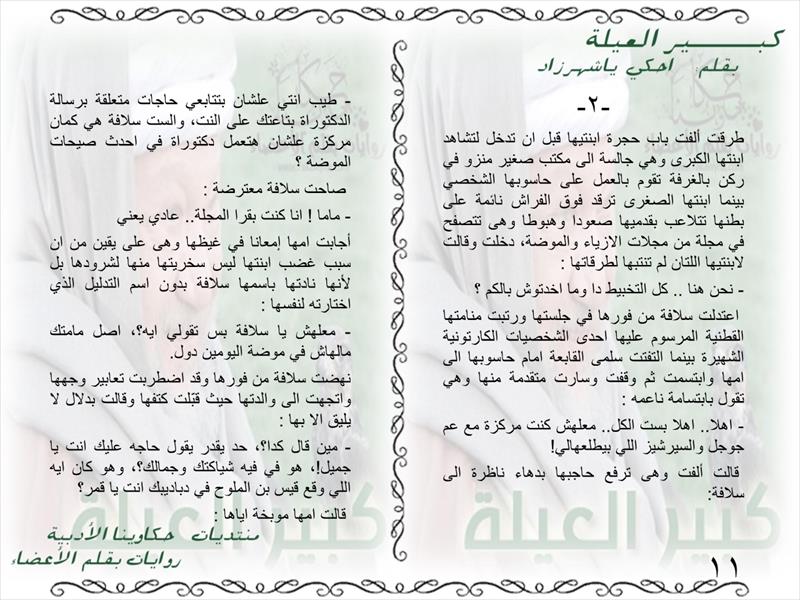 كبـــــير العيلة
بقلم احكي ياشهرزاد
-٢-
طرقت ألفت باب حجرة ابنتيها قبل ان تدخل لتشاهد
ابنتها الكبرى وهي جالسة الى مكتب صغير منزو في
ركن بالغرفة تقوم بالعمل على حاسوبها الشخصي
بينما ابنتها الصغرى ترقد فوق الفراش نائمة على
بطنها تتلاعب بقدميها صعودا وهبوطا وهى تتصفح
في مجلة من مجلات الازياء والموضة، دخلت وقالت
لابنتيها اللتان لم تنتبها لطرقاتها :
- نحن هنا .. كل التخبيط دا وما اخدتوش بالكم ؟
اعتدلت سلافة من فورها في جلستها ورتبت منامتها
القطنية المرسوم عليها احدى الشخصيات الكارتونية
الشهيرة بينما التفتت سلمى القابعة امام حاسوبها الى
امها وابتسمت ثم وقفت وسارت متقدمة منها وهي
تقول بابتسامة ناعمه :
- اهلا.. اهلا بست الكل.. معلهش كنت مركزة مع عم
جوجل والسيرشيز اللي بيطلعهالي!
قالت ألفت وهى ترفع حاجبها بدهاء ناظرة الى
سلافة:
- طيب انتي علشان بتتابعي حاجات متعلقة برسالة
الدكتوراة بتاعتك على النت، والست سلافة هي كمان
مركزة علشان هتعمل دكتوراة في احدث صيحات
الموضة ؟
صاحت سلافة معترضة :
- ماما ! انا كنت بقرا المجلة.. عادي يعني
أجابت امها إمعانا في غيظها وهى على يقين من ان
سبب غضب ابنتها ليس سخريتها منها لشرودها بل
لأنها نادتها باسمها سلافة بدون اسم التدليل الذي
اختارته لنفسها :
- معلهش يا سلافة بس تقولي ايه؟، اصل مامتك
مالهاش في موضة اليومين دول.
نهضت سلافة من فورها وقد اضطربت تعابير وجهها
واتجهت الى والدتها حيث قبّلت كتفها وقالت بدلال لا
يليق الا بها :
- مين قال كدا؟، حد يقدر يقول حاجه عليك انت يا
جميل!، هو في فيه شياكتك وجمالك؟، وهو كان ايه
اللي وقع قيس بن الملوح في دباديبك انت يا قمر؟
قالت امها موبخة اياها :
كبير العيلة
كبير العيلة
منتديات حكاوينا الأدبية
روايات بقلم الأعضاء
١١